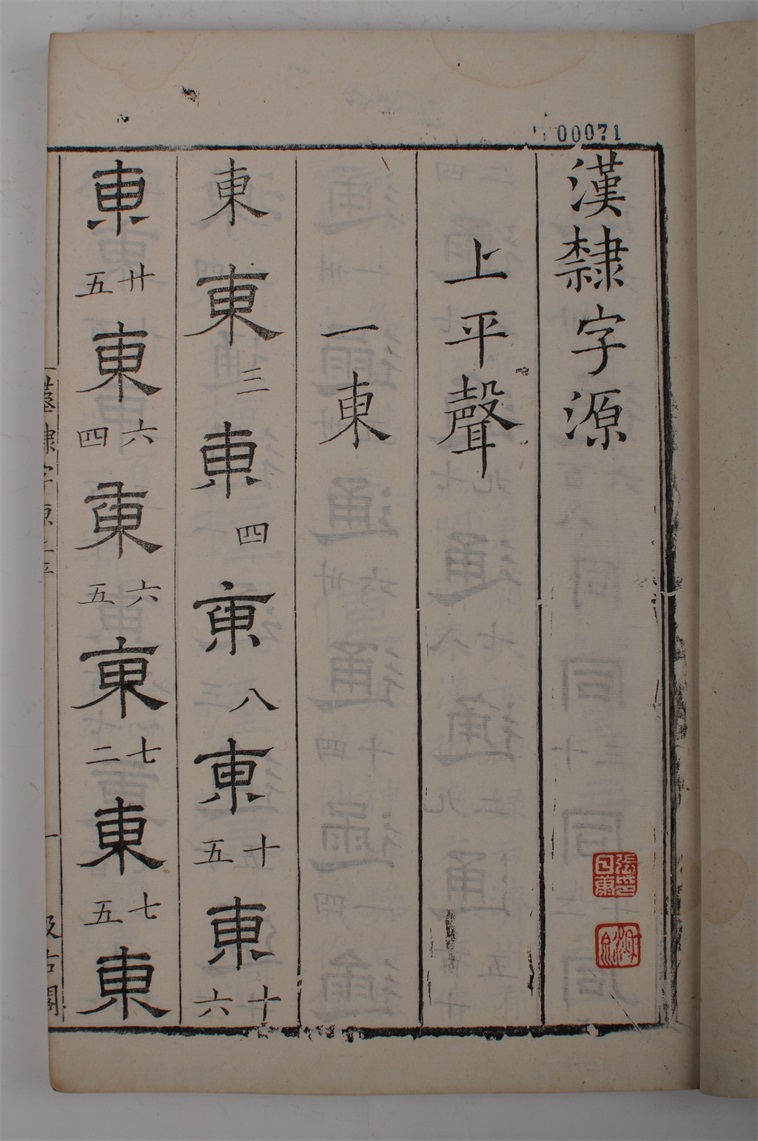 00071
漢隸字源
上平聲
一東
東 東 三 東 四 東 八 東 十五 東 十六
東 廿五 東 六四 東 六五 東 七二 東 七五 東
漢隸字源
一
汲古閣